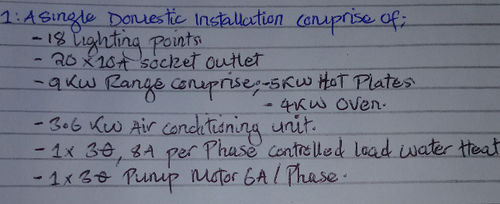 1: A single Domestic Installation comprise of;
- 18 Lighting points
- 20 x 10A socket outlet
- 9KW Range comprise; - 5KW Hot Plates
- 4KW Oven.
- 3.6 KW Air conditioning unit.
- 1 x 3Θ, 8A per Phase controlled load water Heat
- 1 x 3Θ Pump Motor 6A / Phase.